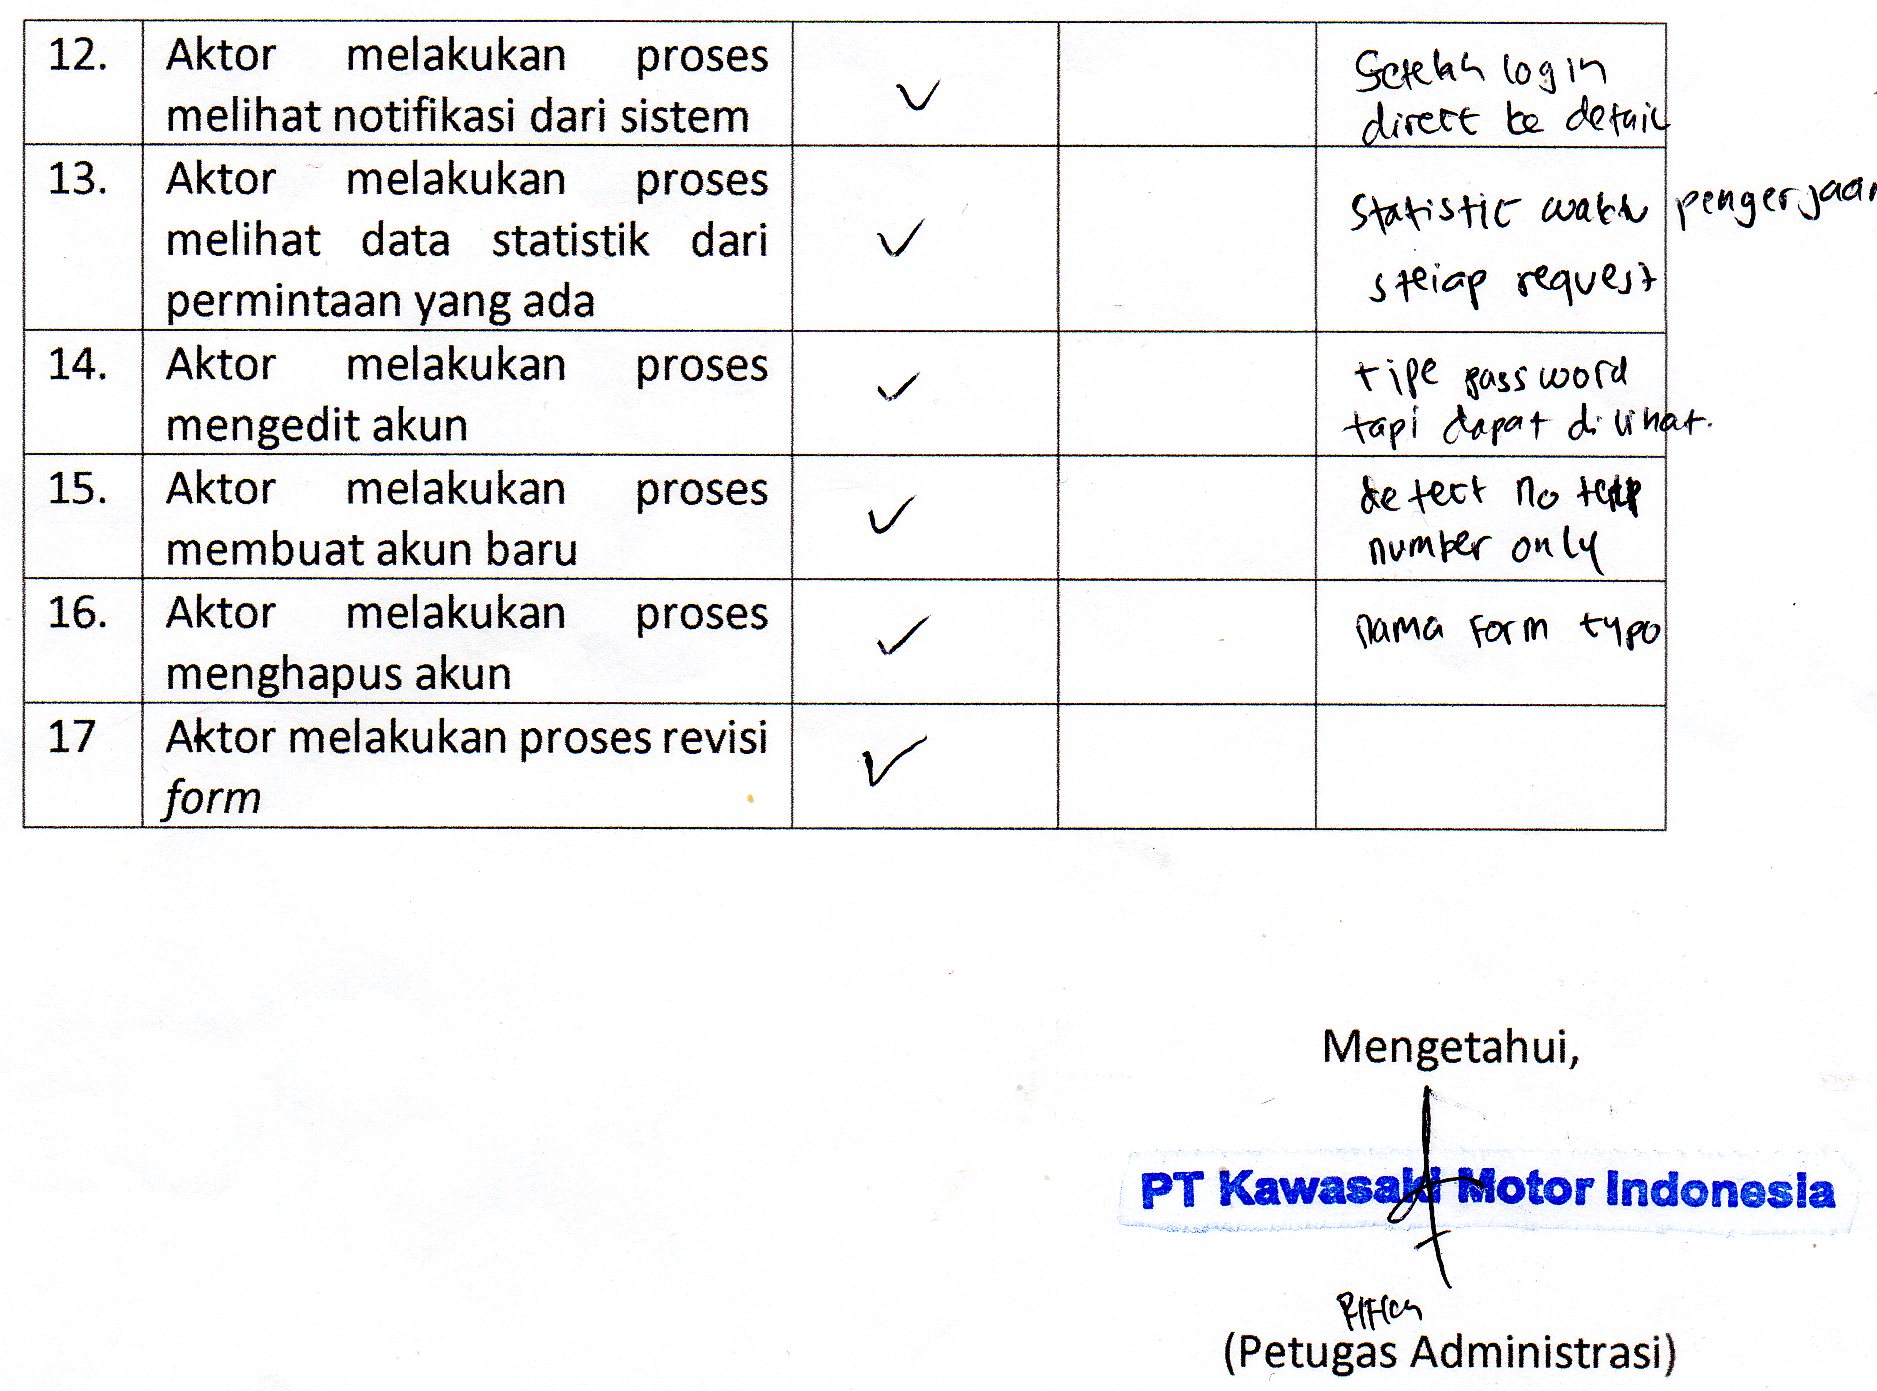 12. Aktor melakukan proses
melihat notifikasi dari sistem
✓
Setelah login
direct ke detail
13. Aktor melakukan proses
melihat data statistik dari
permintaan yang ada
✓
Statistic waktu pengerjaan
steiap request
14. Aktor melakukan proses
mengedit akun
✓
tipe password
tapi dapat dilihat.
15. Aktor melakukan proses
membuat akun baru
✓
detect no telp
number only
16. Aktor melakukan proses
menghapus akun
✓
nama form typo
17 Aktor melakukan proses revisi
form
✓
Mengetahui,
PT Kawasaki Motor Indonesia
(Petugas Administrasi)